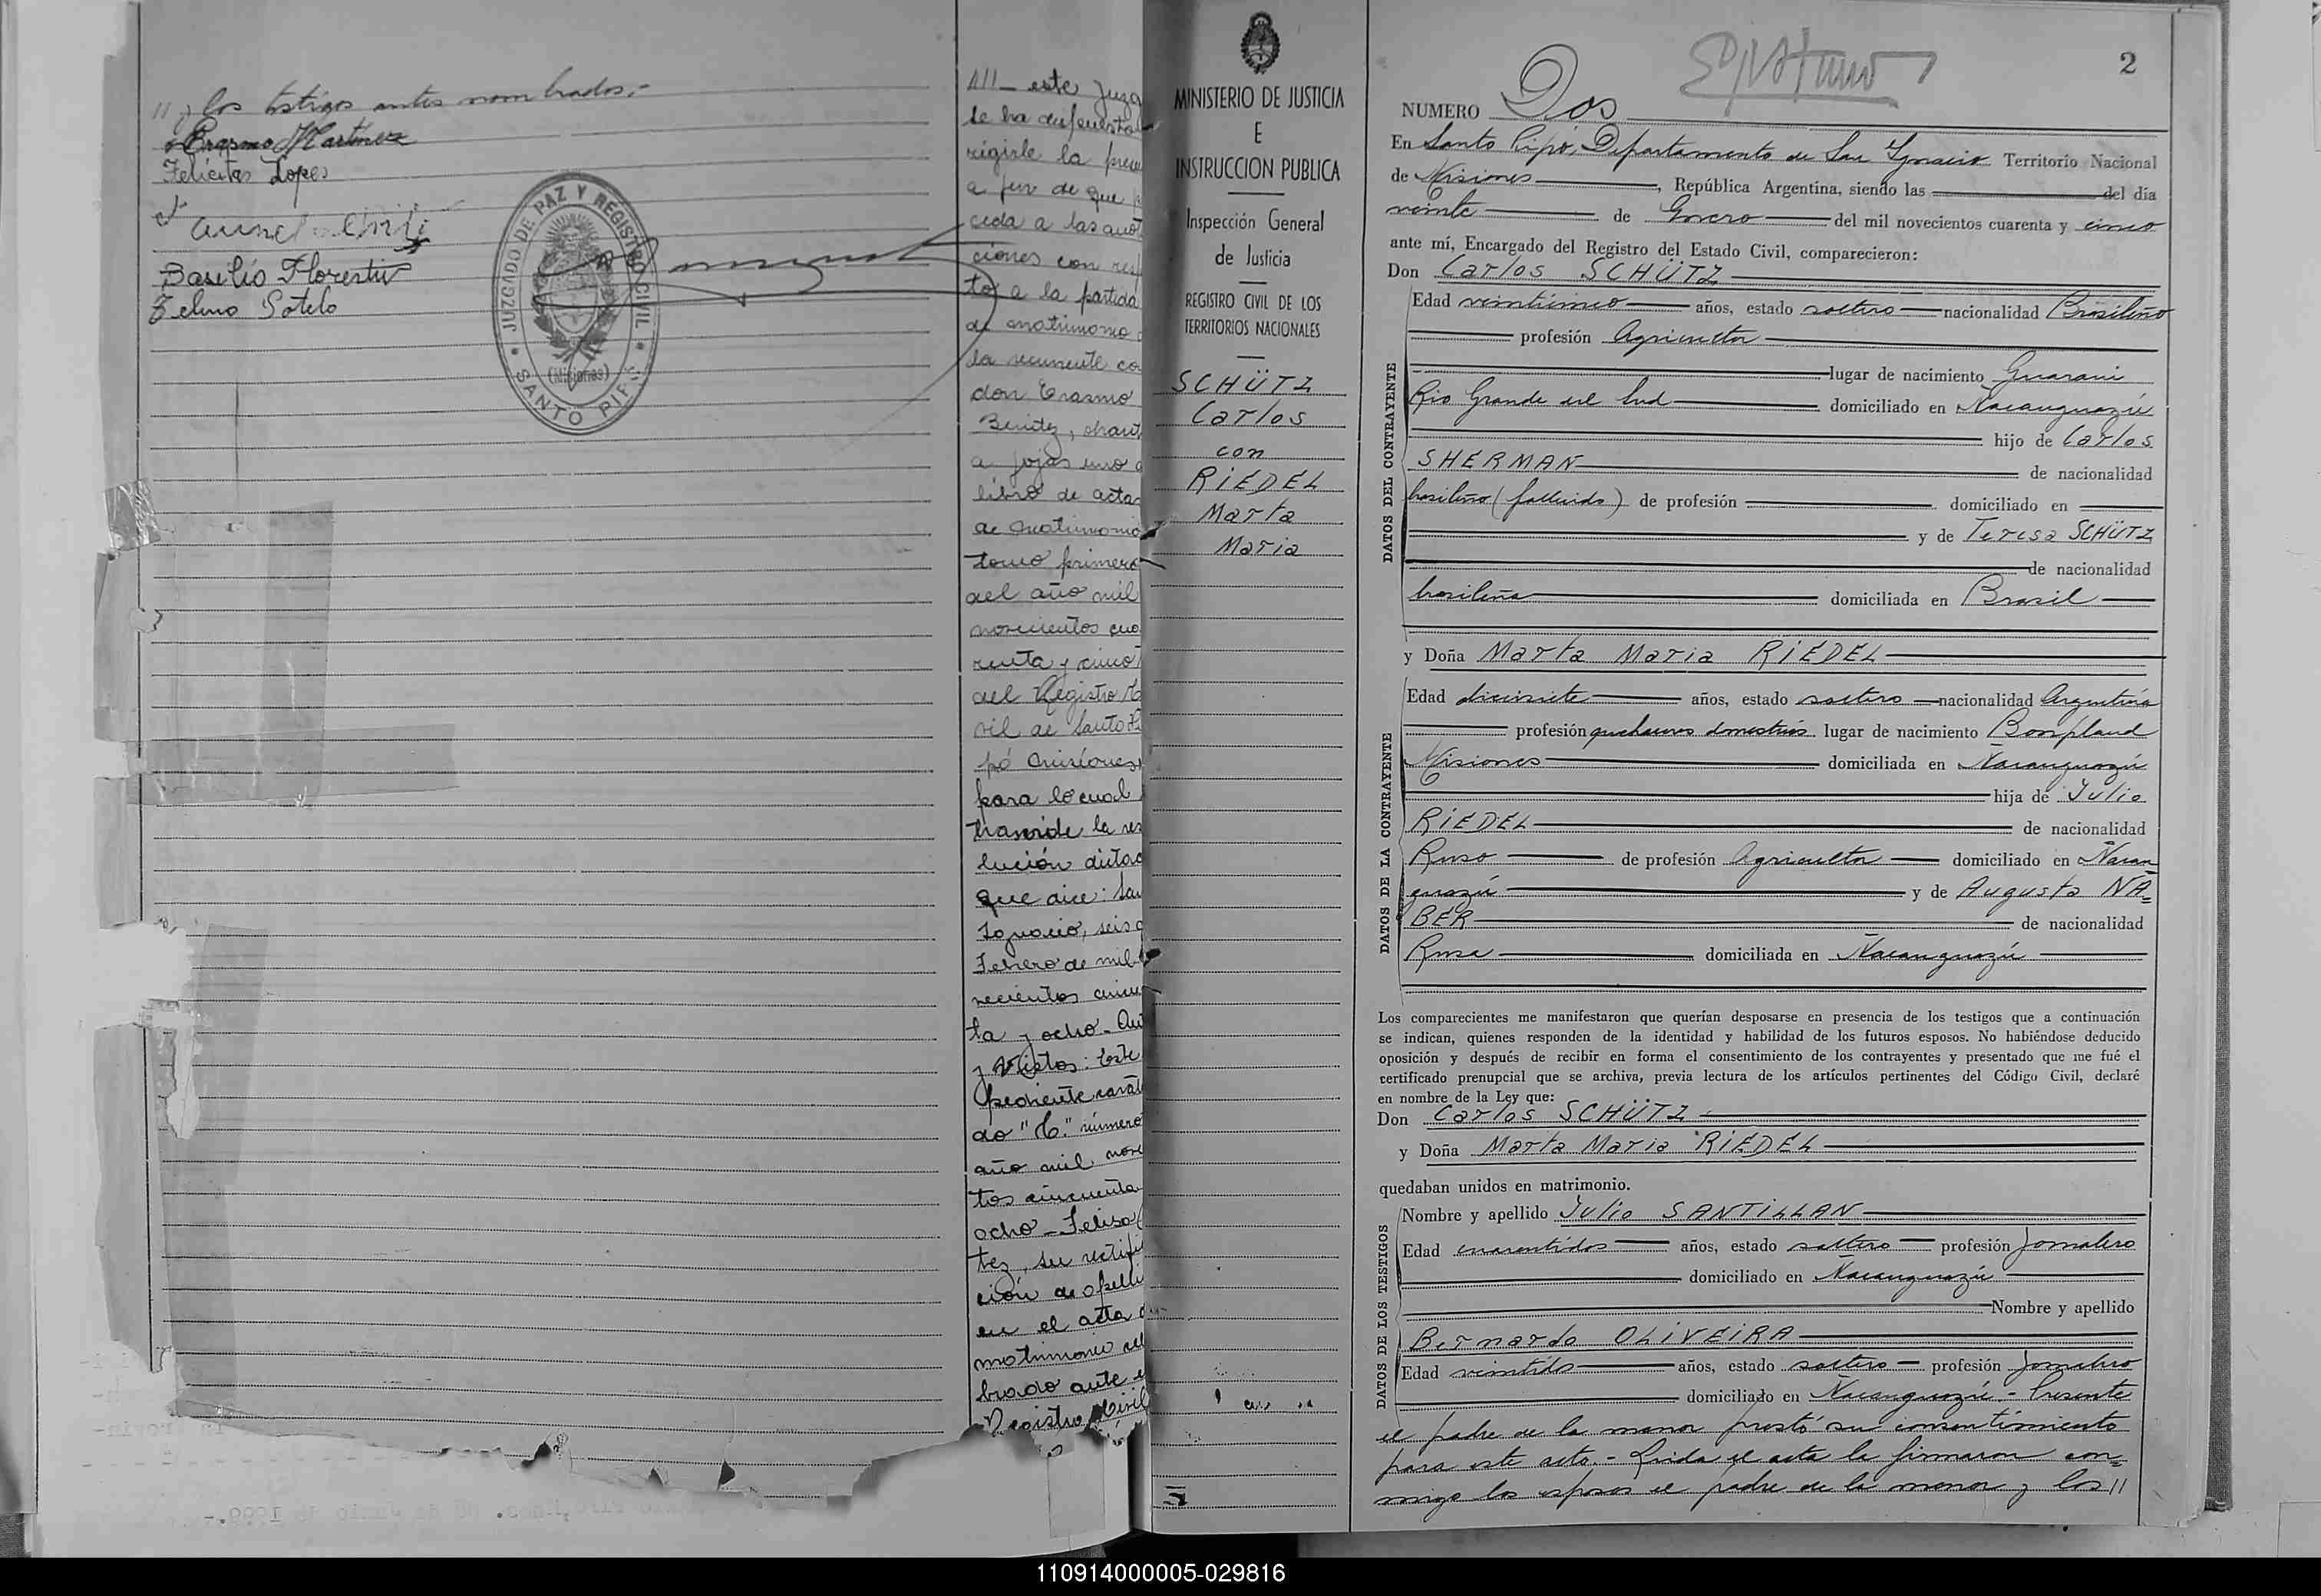 11 y los testigos antes nombrados.-
Erasmo Martinez
Felicitas Lopes
Basilio Florentin
Zelmo Sotelo
JUZGADO DE PAZ Y REGISTRO CIVIL
(Misiones)
SANTO PIPÓ
111- este Juzg
se ha dispuesto
rigirle la prese
a fin de que p
ceda a las anot
ciones con resp
to a la partida
de matrimonio d
la recurrente co
don Erasmo
Benitez, obrant
a fojas uno d
libro de actas
de matrimonio
tomo primero
del año mil
novecientos cua
renta y cinco
del Registro Ci
vil de Santo Pi
pó Misiones,
para lo cual
transcribe la res
lución dictad
que dice: San
Ignacio, seis d
Febrero de mil
vecientos cincu
ta y ocho - Aut
y Vistos: Este
pediente carat
do "C." número
año mil nove
tos cincuenta
ocho - Felisa
tez, su rectifi
ción de apelli
en el acta d
matrimonio cel
brado ante e
Registro Civil
MINISTERIO DE JUSTICIA
E
INSTRUCCION PUBLICA
Inspección General
de Justicia
REGISTRO CIVIL DE LOS
TERRITORIOS NACIONALES
SCHÜTZ
Carlos
con
RiEDEL
Marta
Maria
2
NUMERO Dos
En Santo Pipó, Departamento de San Ignacio Territorio Nacional
de Misiones, República Argentina, siendo las del día
veinte de Enero del mil novecientos cuarenta y cinco
ante mí, Encargado del Registro del Estado Civil, comparecieron:
Don Carlos SCHÜTZ
DATOS DEL CONTRAYENTE
Edad veinticinco años, estado soltero nacionalidad Brasileño
profesión Agricultor
lugar de nacimiento Guarani
Rio Grande del Sud domiciliado en Ñacanguazú
hijo de Carlos
SHERMAN de nacionalidad
brasileño (fallecido) de profesión domiciliado en
y de Teresa SCHÜTZ
de nacionalidad
brasileña domiciliada en Brasil
y Doña Marta Maria RiEDEL
DATOS DE LA CONTRAYENTE
Edad diecisiete años, estado soltera nacionalidad Argentina
profesión quehaceres domesticos lugar de nacimiento Bonpland
Misiones domiciliada en Ñacanguazú
hija de Julio
RiEDEL de nacionalidad
Ruso de profesión Agricultor domiciliado en Ñacan
guazú y de Augusta NA=
BER de nacionalidad
Rusa domiciliada en Ñacanguazú
Los comparecientes me manifestaron que querían desposarse en presencia de los testigos que a continuación
se indican, quienes responden de la identidad y habilidad de los futuros esposos. No habiéndose deducido
oposición y después de recibir en forma el consentimiento de los contrayentes y presentado que me fué el
certificado prenupcial que se archiva, previa lectura de los artículos pertinentes del Código Civil, declaré
en nombre de la Ley que:
Don Carlos SCHÜTZ
y Doña Marta Maria RiEDEL
quedaban unidos en matrimonio.
DATOS DE LOS TESTIGOS
Nombre y apellido Julio SANTiLLAN
Edad cuarentidos años, estado soltero profesión Jornalero
domiciliado en Ñacanguazú
Nombre y apellido
Bernardo OLiVEiRA
Edad veintidos años, estado soltero profesión Jornalero
domiciliado en Ñacanguazú - Presente
el padre de la menor prestó su consentimiento
para este acto. - Leida el acta la firmaron con=
migo los esposos el padre de la menor y los 11
110914000005-029816